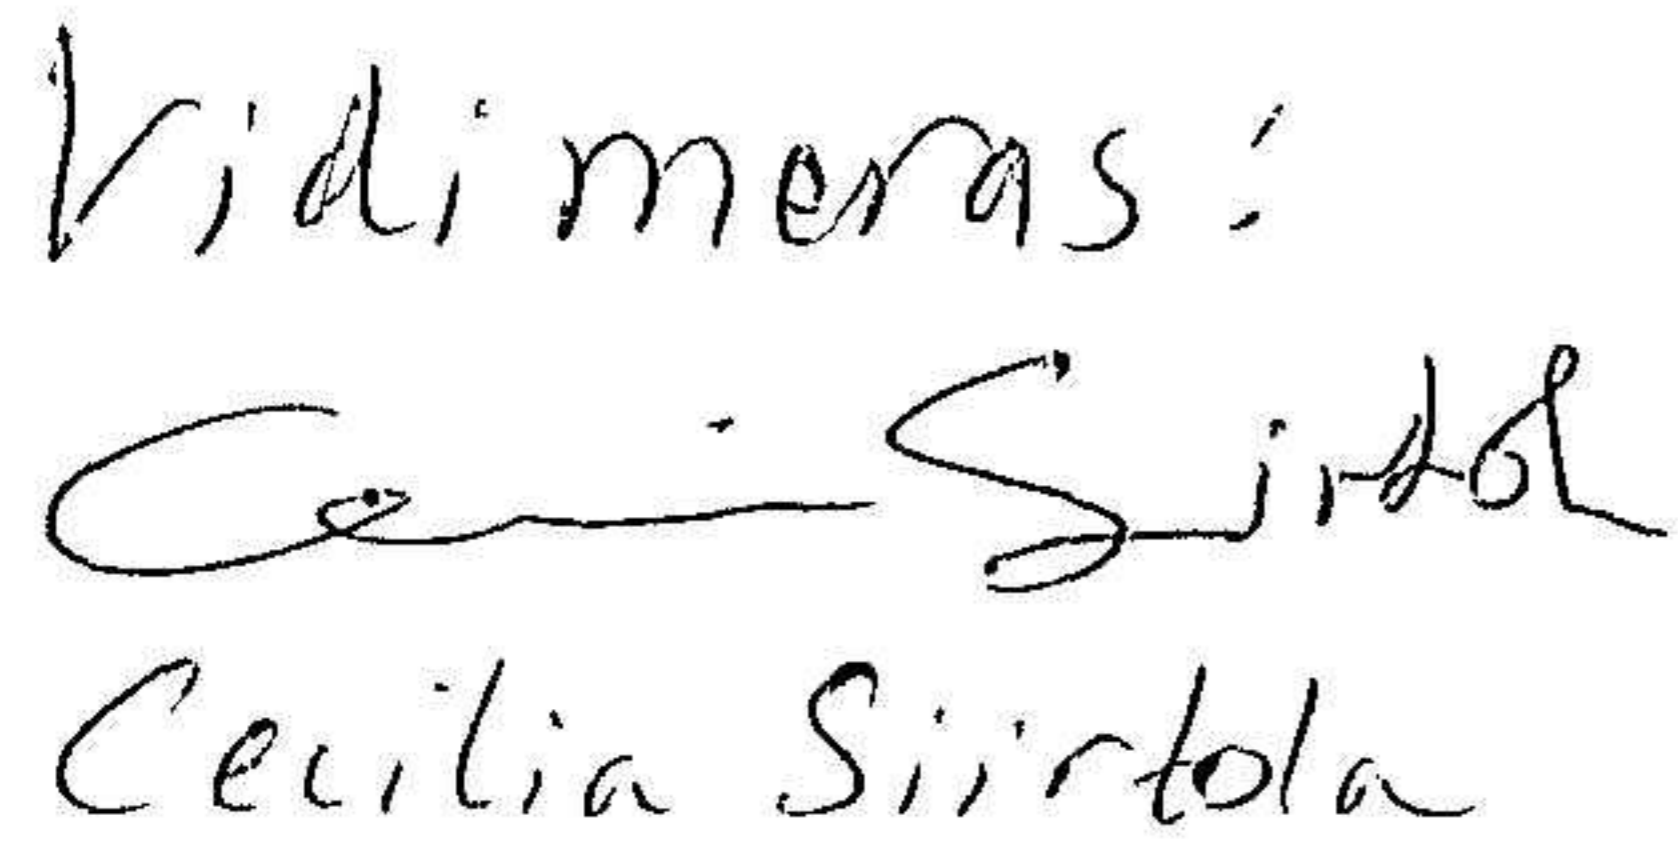 Vidimeras:
Cecilia Siirtola
Cecilia Siirtola